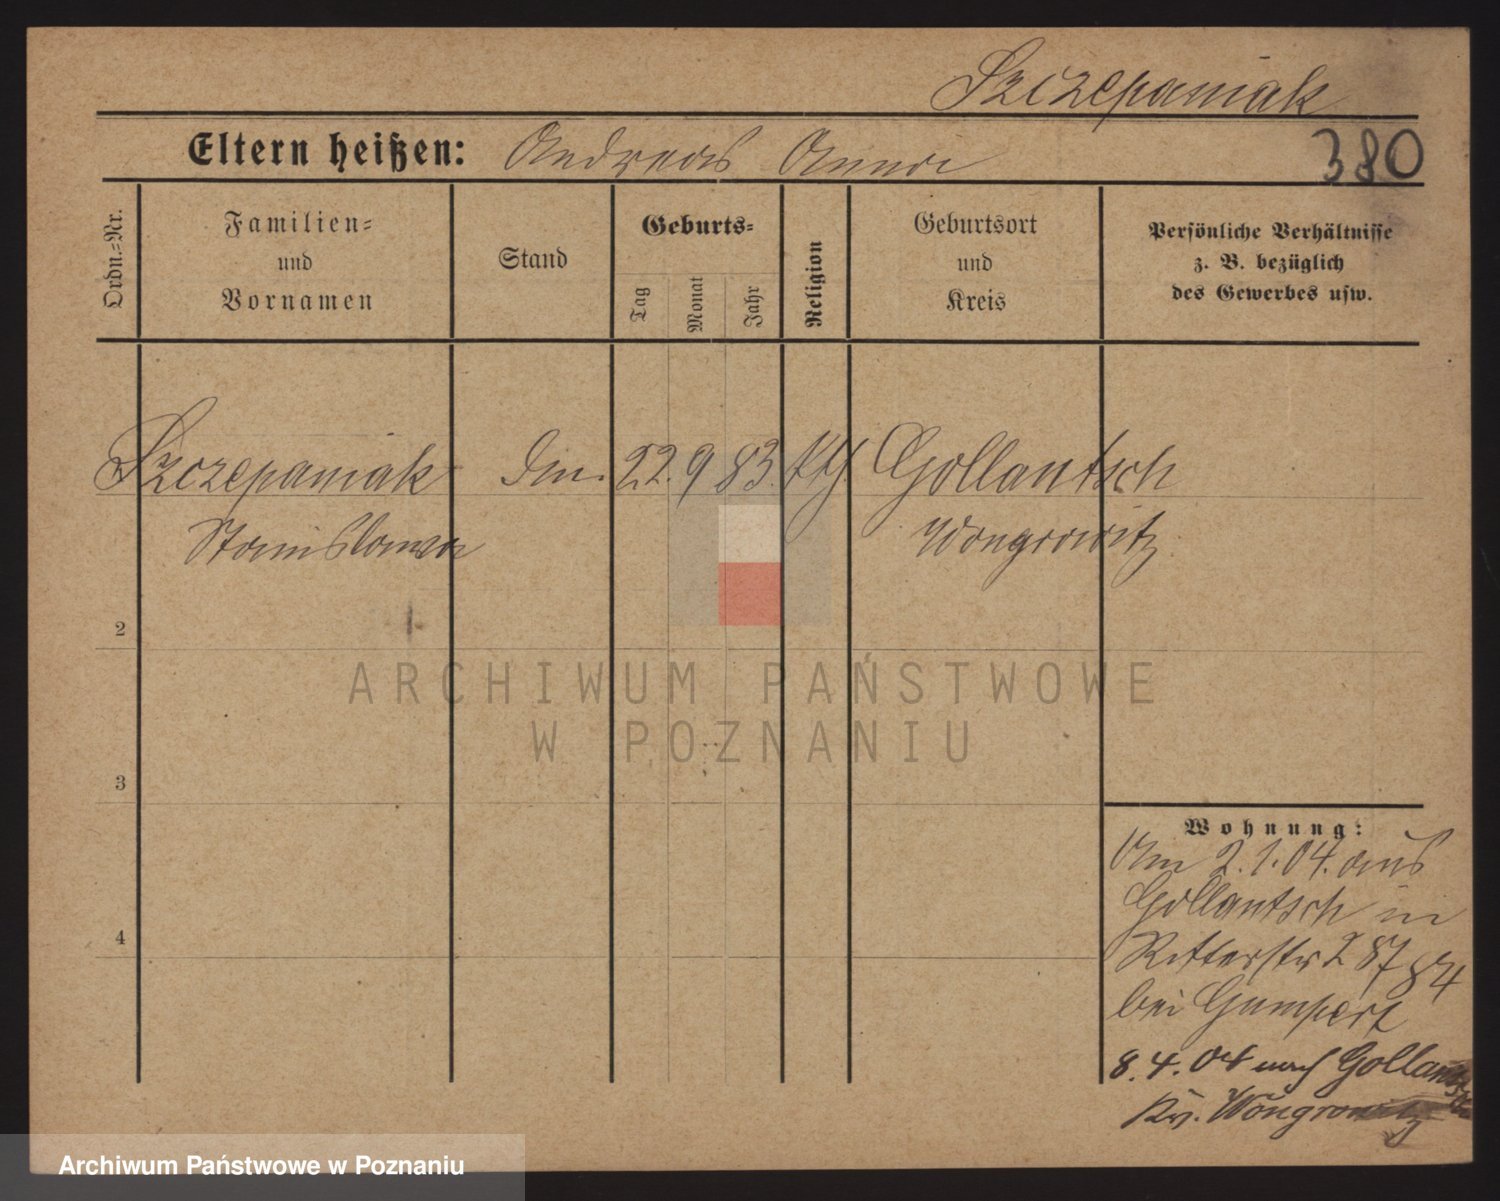 Szczepaniak
Eltern heißen: Andreas Anna
380
Ordn.=Nr.
Familien=
und
Vornamen
Stand
Geburts=
Tag
Monat
Jahr
Religion
Geburtsort
und
Kreis
Persönliche Verhältnisse
z. B. bezüglich
des Gewerbes usw.
Szczepaniak 22. 9 83. kth. Gollantsch
Stanislawa Wongrowitz
2
ARCHIWUM PAŃSTWOWE
W POZNANIU
3
4
Wohnung:
Am 2.1.04. aus
Gollantsch in
Ritterstr 2 87 84
bei Gumpert
8.4.04 nach Gollantsch
Kr. Wongrowitz
Archiwum Państwowe w Poznaniu